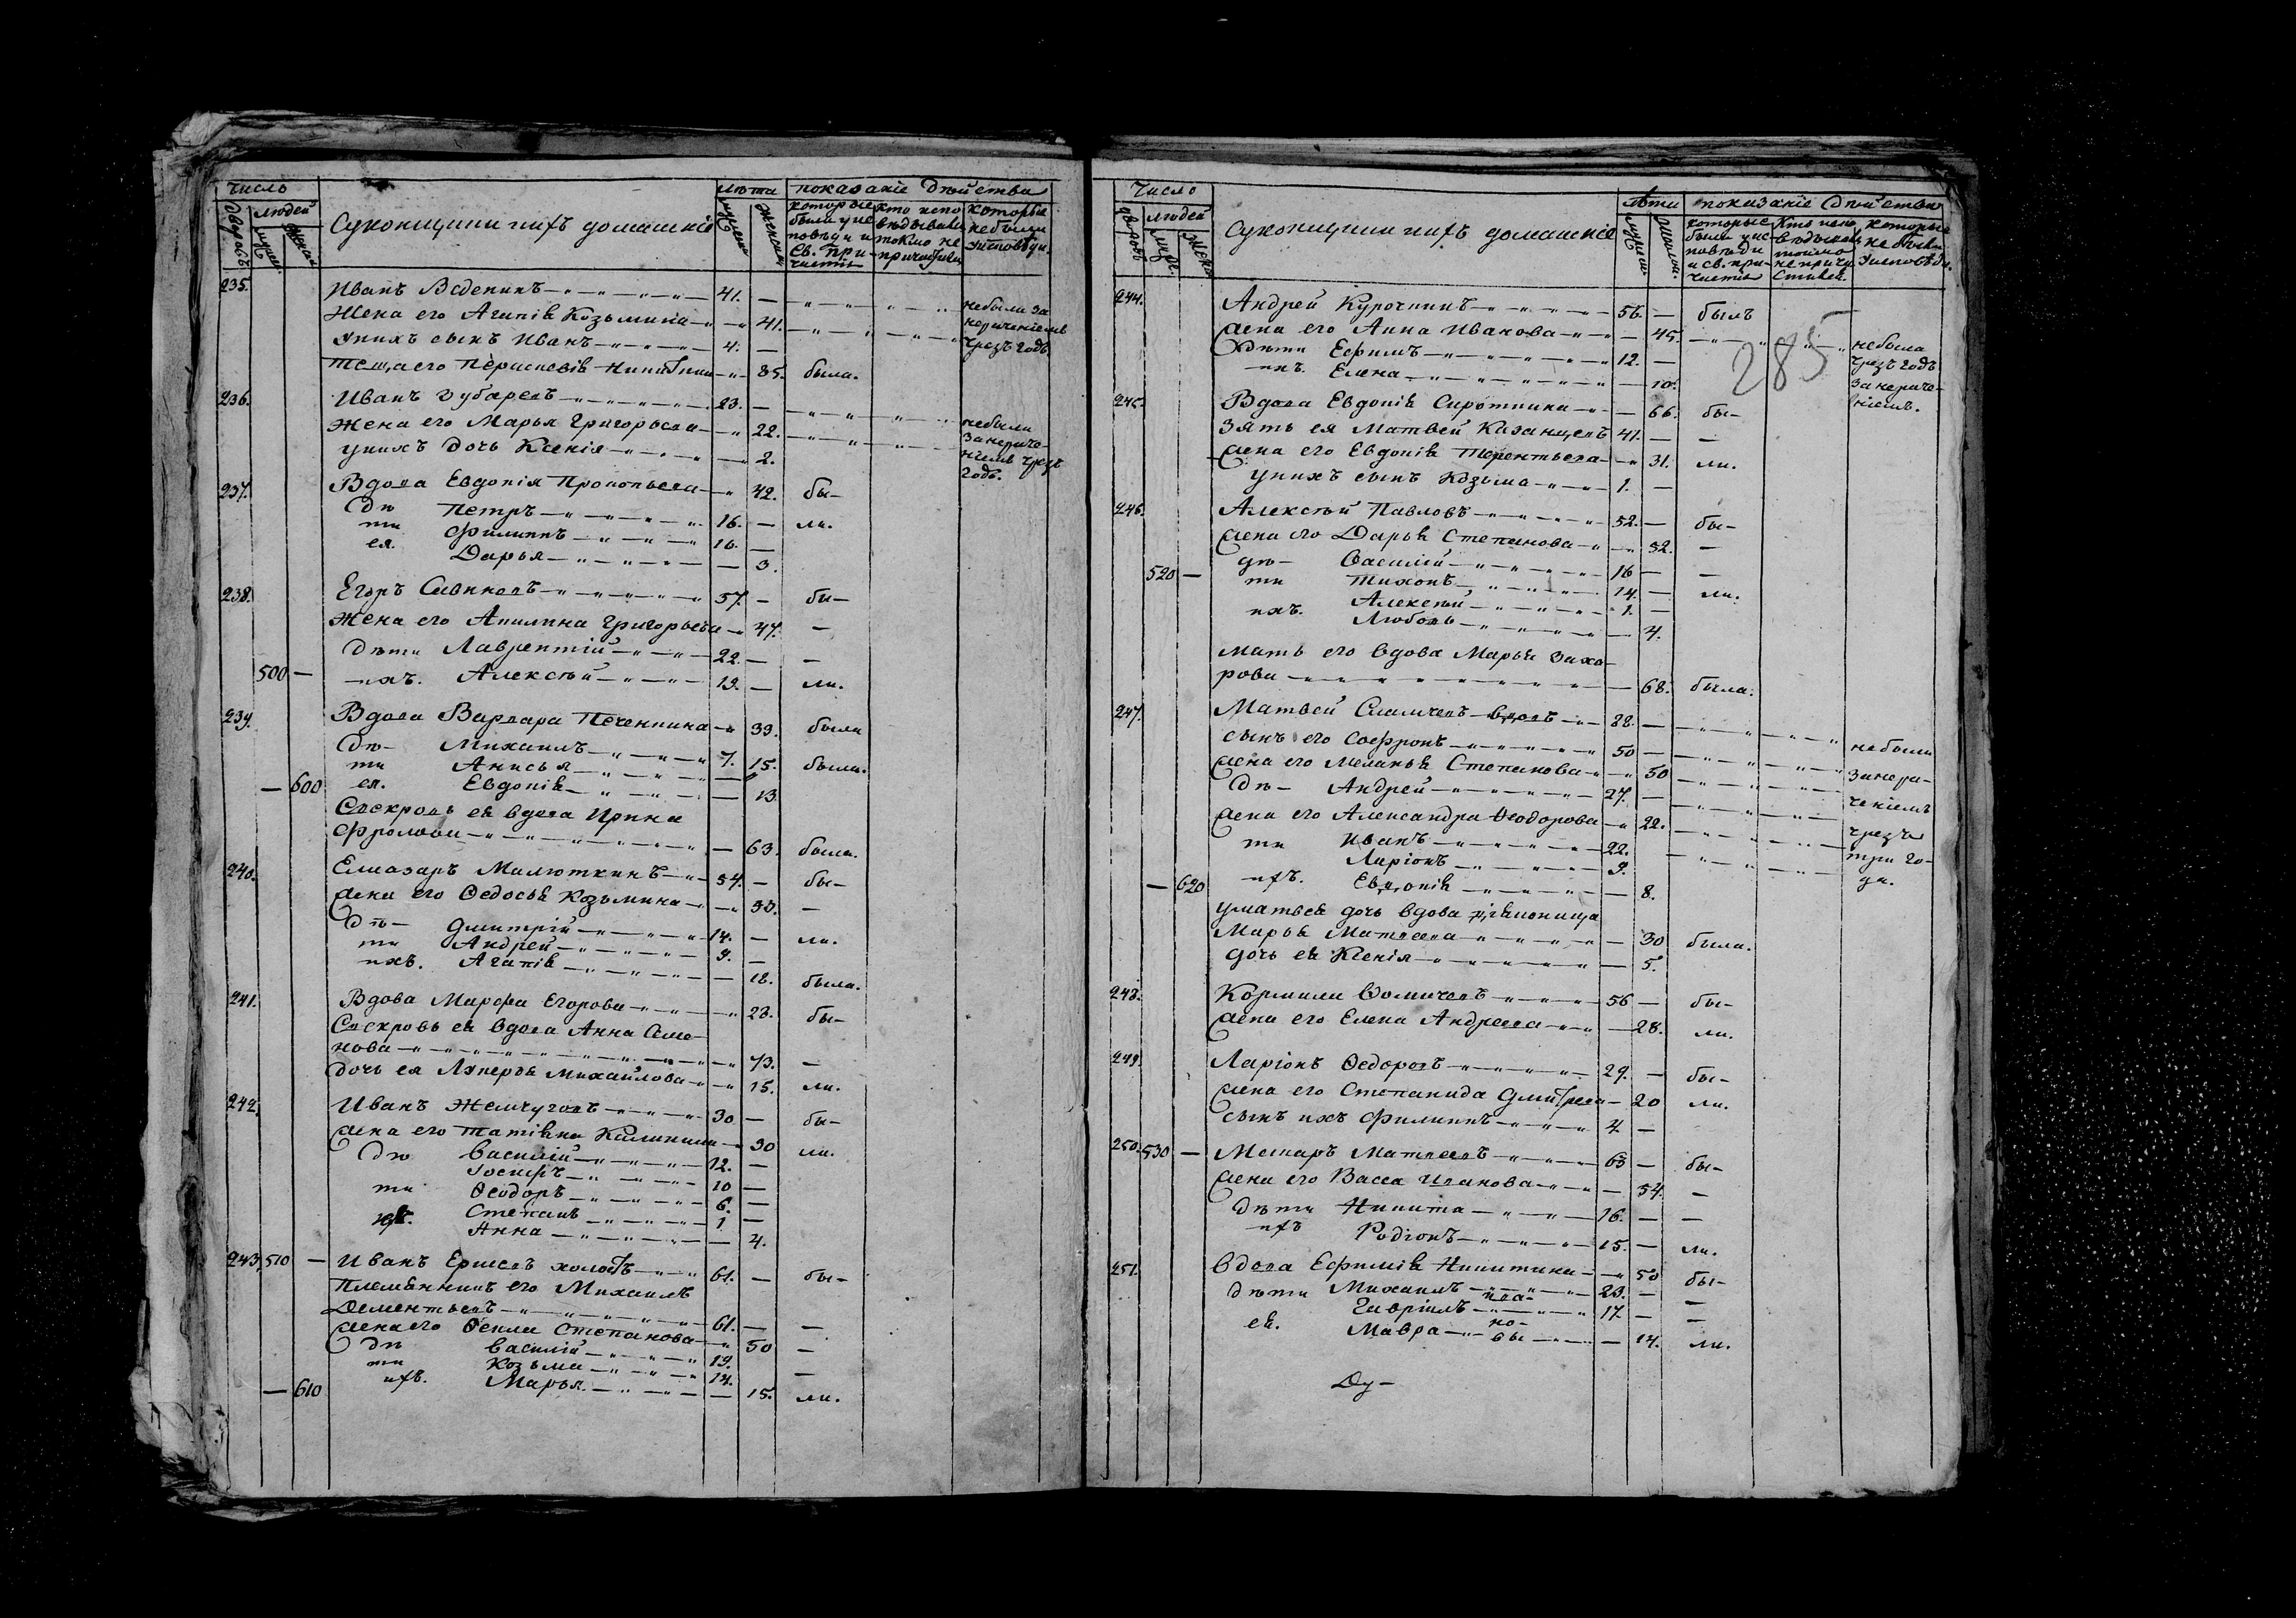 Число
людей
Дворовъ
мужск.
женск.
Суконщики и ихъ домашніе
лѣта
мужеска
женска
показаніе дѣйства
которые были у исповѣди и Св. причастія
кто исповѣдывался токмо не причастився
которые не были у исповѣди
235. Иванъ 41. — небыли за
Жена его Агапія Козьмина — 41. нерачениемъ
у нихъ сынъ Иванъ 4. — чрезъ годъ
теща его Параскевія Никитина — 85. была.
236. Иванъ Губаревъ 23. — небыли
Жена его Марья Григорьева — 22. за нераче-
у нихъ дочь Ксенія — 2. ніемъ чрезъ
годъ.
237. Вдова Евдокія Прокопьева — 42. бы-
дѣ Петръ 16. — ли.
ти Филиппъ 16. —
ея. Дарья — 3.
238. Егоръ Савиновъ 57. — бы-
Жена его Акилина Григорьева — 47. —
дѣти Лаврентій 22. — —
500 — ихъ. Алексѣй 19. — ли.
239. Вдова Варвара Печенкина — 39. была
дѣ- Михаилъ 7.
ти Анисья — 15. была.
— 600 ея. Евдокія — 13
Свекровь ея вдова Ирина
Фролова — 63. была.
240. Елиазаръ Малюткинъ 54. — бы-
жена его Ѳедосья Козьмина — 53. —
дѣ- Дмитрій 14. — ли.
ти Андрей 9. —
ихъ. Агапія — 18. была.
241. Вдова Марфа Егорова — 28. бы-
Свекровь ея вдова Анна Семе-
нова — 73. —
дочь ея Михайлова — 15. ли.
242. Иванъ Жемчуговъ 30 — бы-
жена его Татіяна Калинина — 30 ли.
дѣ Василій 12. —
Іосифъ 10 —
ти Ѳеодоръ 6. —
Степанъ 1. —
ихъ. Анна — 4.
243. 510 — Иванъ Ершевъ холостъ 61. — бы-
племянникъ его Михаилъ
Дементьевъ 61. — —
жена его Ѳекла Степанова — 50 —
дѣ Василій 19.
ти Козьма 14. —
— 610 ихъ. Марья — 15. ли.
Число
людей
дворовъ
муж.
женс.
Суконщики и ихъ домашніе
лѣта
мужеск.
женск.
показаніе дѣйства
которые были у исповѣди и св. причастія
кто исповѣдывался токмо не причастився
которые не были у исповѣди.
285
244. Андрей Курочкинъ 56. — былъ
жена его Анна Иванова — 45. небыла
дѣти Ефимъ 12. — чрезъ годъ
ихъ. Елена — 10. за нераче-
ніемъ.
245. Вдова Евдокія Сироткина — 66. бы-
зять ея Матвей Казанцевъ 41. — —
жена его Евдокія Терентьева — 31. ли.
у нихъ сынъ Козьма 1. —
246. Алексѣй Павловъ 52. — бы-
жена его Дарья Степанова — 52. —
дѣ- Василій 16 — —
520 — ти Тихонъ 14. — ли.
Алексѣй 1. —
ихъ. Любовь — 4.
мать его вдова Марья Заха-
рова — 68. была.
247. Матвей вдовъ 88. — небыли
сынъ его Софронъ 50 —
жена его Меланья Степанова — 50 за нера-
дѣ- Андрей 27. — ченіемъ
жена его Александра Ѳеодорова — 22. чрезъ
ти Иванъ 22. три го-
Ларіонъ 9. да.
— 620 ихъ. Евдокія — 8.
у матвея дочь вдова
Марья Матвеева — 30 была.
дочь ея Ксенія — 5.
248. Корнила 56 — бы-
жена его Елена Андреева — 28. ли.
249. Ларіонъ Ѳедоровъ 29. — бы-
жена его Степанида Дмитрева — 20 ли.
сынъ ихъ Филиппъ 4 —
250. 530 — Макаръ Матвеевъ 63 — бы-
жена его Васса Иванова — 54. —
дѣти Никита 16. — —
ихъ Родіонъ 15. — ли.
251. Вдова Ефимія Никитина — 50 бы-
дѣти Михаилъ 23. — —
Ива-
Гавріилъ 17. — —
но-
ея. Мавра вы — 14. ли.
Ду-